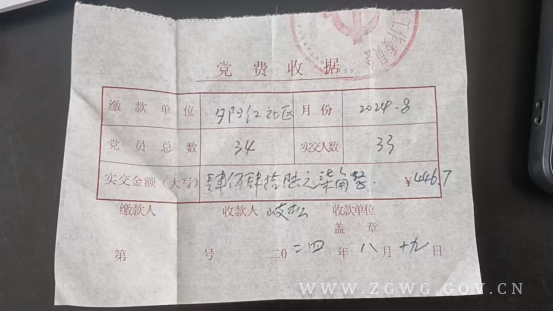 党费收据
缴款单位 夕阳红社区 月份 2024.8
党员总数 34 实交人数 33
实交金额(大写) 肆佰肆拾陆元柒角整 ¥446.7
缴款人 收款人 收款单位
盖章
第 号 二0二四年八月十九日
WWW.ZGWG.GOV.CN